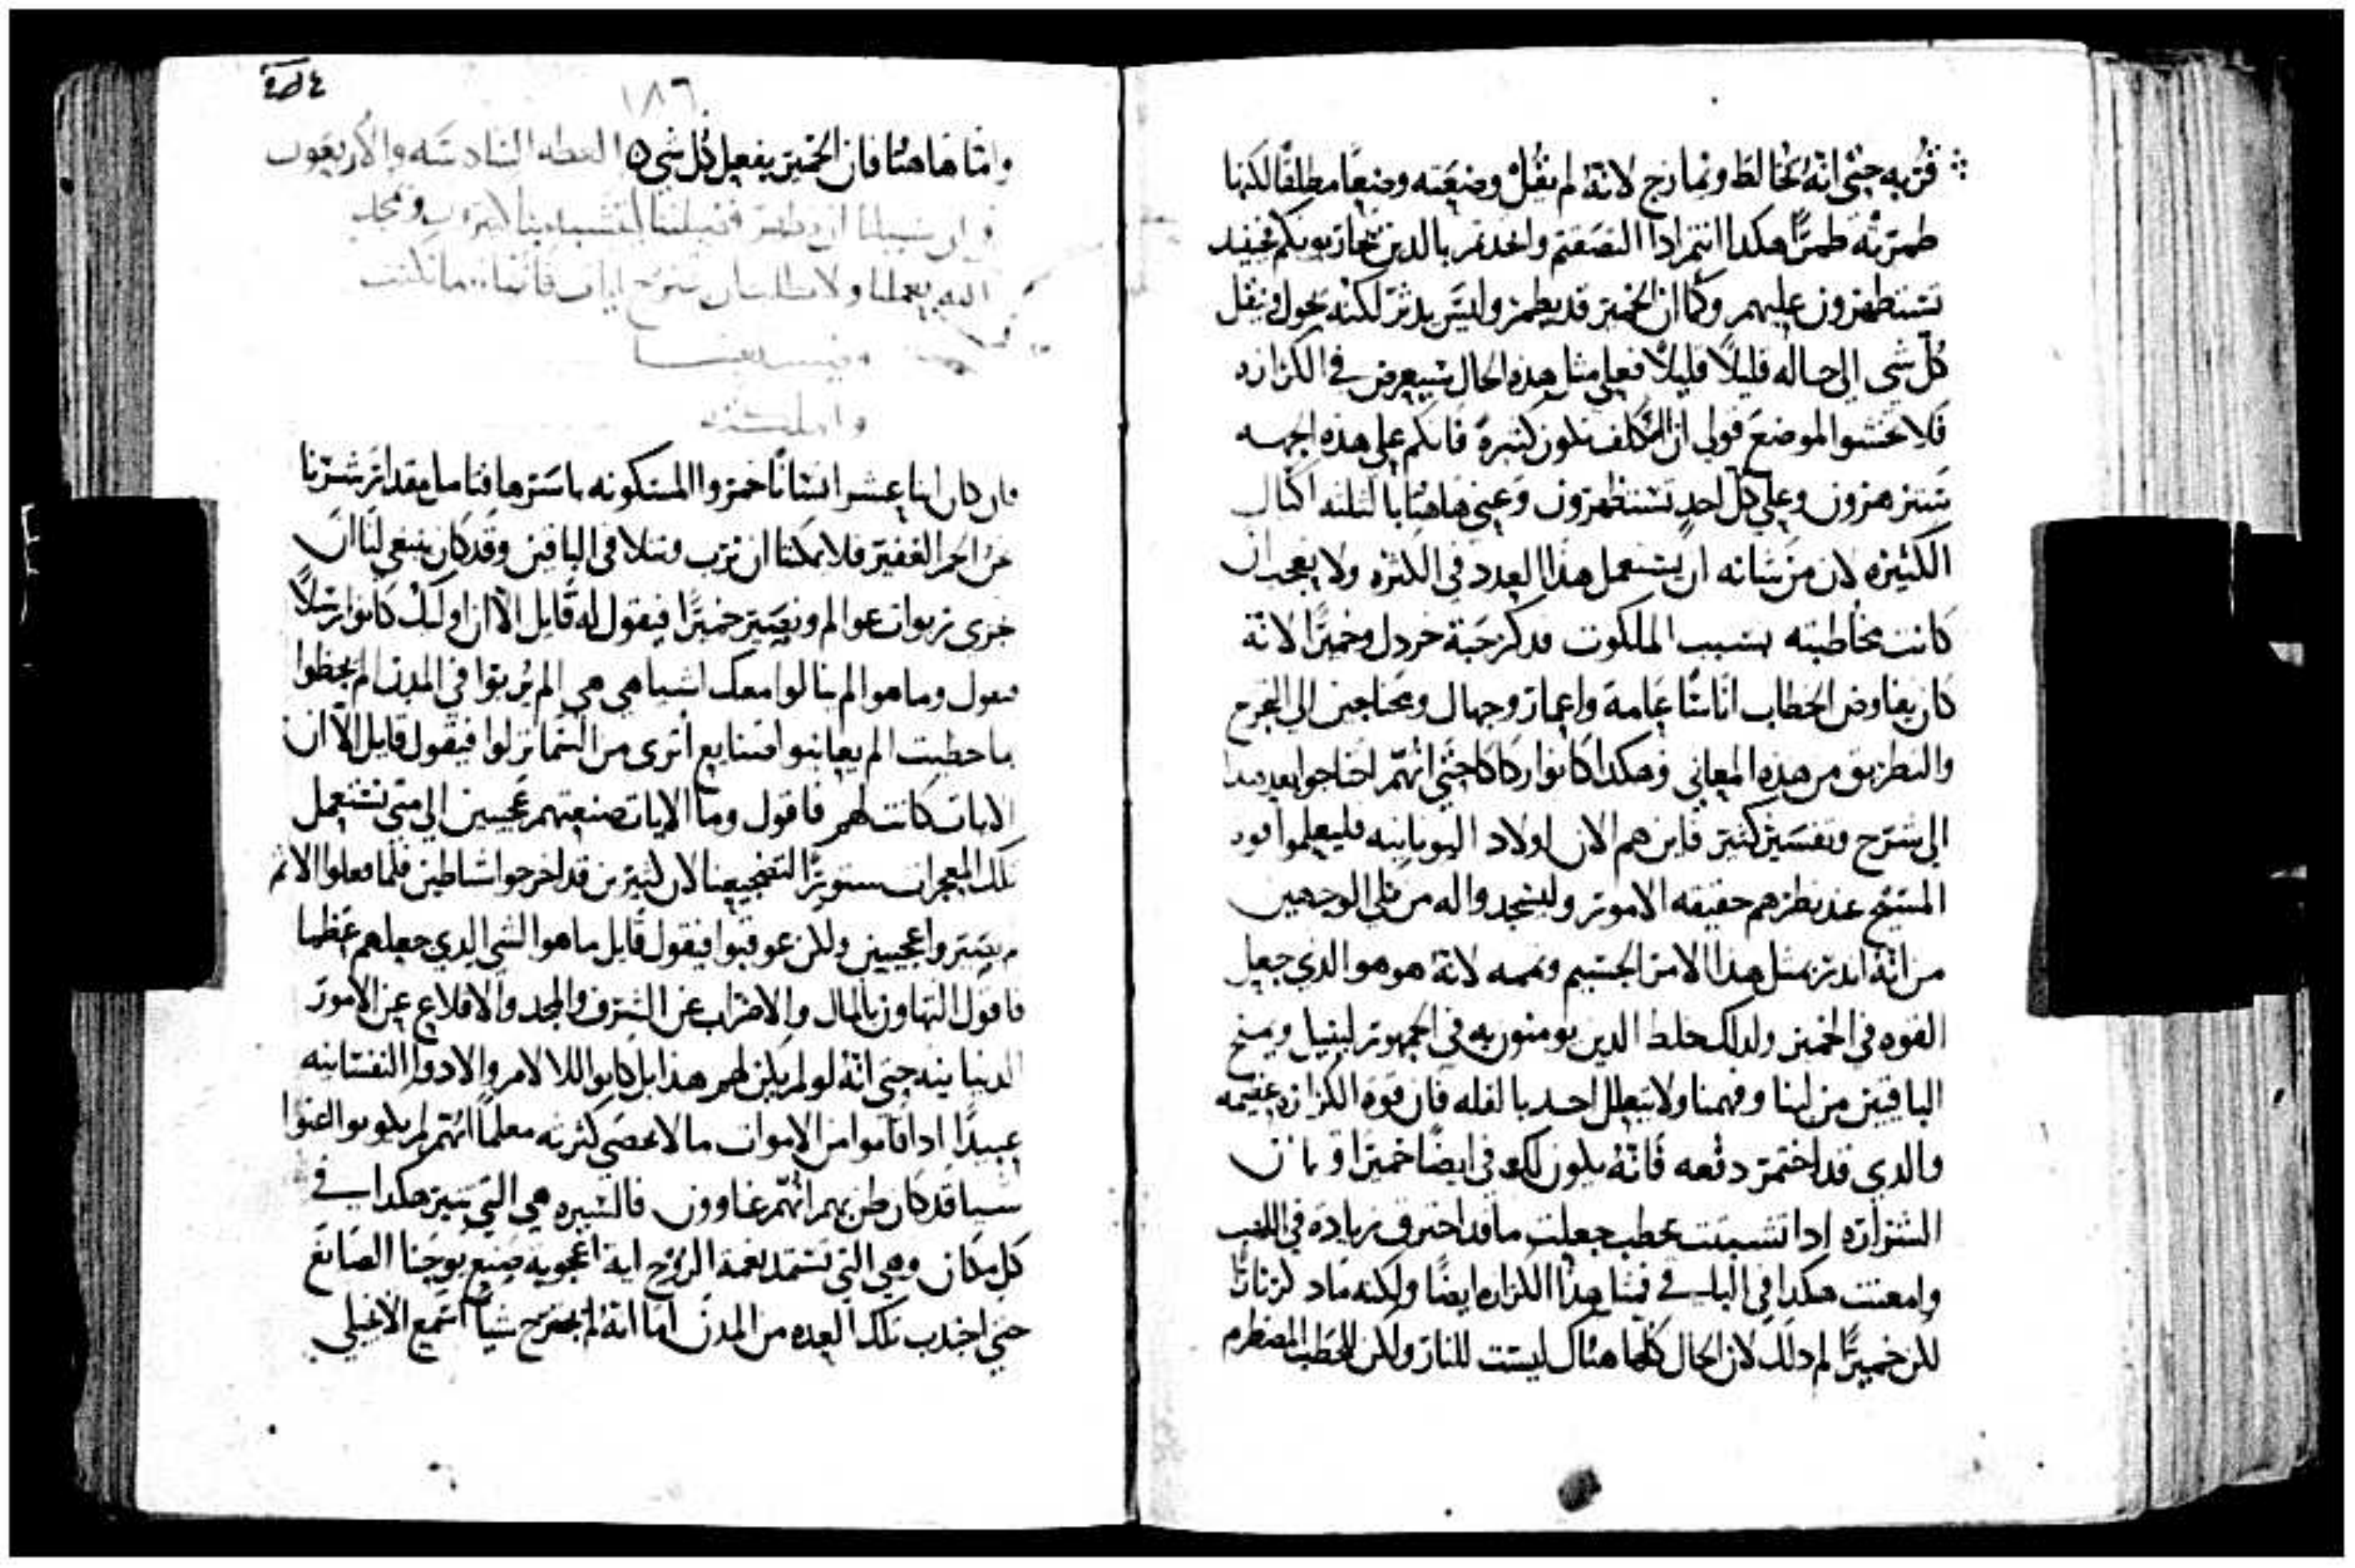 قربه حتى انه تخالط وتمازج لانه لم يقل وضعته وضعا مطلقا لكنها
طمرته طمرا هكدا انتم ادا التصقتم واتحدتم بالدين تحاربونكم فحينيد
تستظهرون عليهم وكما ان الخمير قد يطمر وليس يدثر لكنه يحول وينقل
كل شي الي حاله قليلا قليلا فعلي مثل هده الحال سيعرض في الكرازه
فلا تخشوا لموضع قولي ان الكلف تكون كثيرة فانكم علي هده الجهه
ستزهرون وعلي كل احد تستظهرون وعني هاهنا بالثلثه اكيال
الكثيره لان من شانه ان يستعمل هدا العدد في الكثره ولا تعجب ان
كانت مخاطبته بسبب الملكوت فدكر حبة خردل وخميرا لانه
كان يفاوض الخطاب اناسا عامة واغمار وجهال ومحتاجين الي الفرح
والتطريق من هده المعاني وهكدا كانوا ركاكا حتي انهم احتاجوا بعد هدا
الي شرح وتفسير كثير فاين هم الان اولاد اليونانيه فليعلموا قوه
المسيح عند نظرهم حقيقه الامور وليسجدوا له من كلي الوجهين
من انه اندر بمثل هدا الامر الجسيم وتممه لانه هو هو الدي جعل
القوه في الخمير ولدلك خلط الدين يومنون به في الجمهور لينيل ويمنح
الباقين من لبنا وفهمنا ولا يتعلل احد بالقله فان قوة الكرازه عظيمه
والدي قد اختمر دفعه فانه يكون للاخر ايضا خميرا وكما ان
الشراره ادا تشبثت بحطب جعلت ما قد احترق زياده في اللهب
وامعنت هكدا في الباقي فشان هدا الكرازه ايضا ولكنه ما دكر نارا
لكن خميرا لم دلك لان الحال كلها هناك ليست للنار ولكن للحطب المضطرم
١٨٦
واما هاهنا فان الخمير يفعل كل شي العظه السادسه والاربعون
فان كان اثنا عشر انسانا خمروا المسكونه باسرها فتامل مقدار شرنا
نحن الجم الغفير فلا يمكنا ان نرتب ونتلافي الباقين وقد كان ينبغي لنا ان
نجزي ربوات عوالم ونصير خميرا فيقول له قايل الا ان اوليك كانوا رسلا
فنقول وما هو الم ينالوا معك اشيا هي هي الم يربوا في المدن الم يحظوا
بما حظيت الم يعانوا صنايع اتري من السما نزلوا فيقول قايل الا ان
الايات كانت لهم فاقول وما الايات صنعتهم عجيبين الي متي نستعمل
تلك المعجزات ستورا لتضجيعنا لان كثيرين قد اخرجوا شياطين فلما فعلوا الاثم
لم يصيروا عجيبين ولكن عوقبوا فيقول قايل ما هو الشي الدي جعلهم عظما
فاقول التهاون بالمال والاضراب عن الشرف والمجد والاقلاع عن الامور
الدنيانيه حتي انه لو لم يكن لهم هدا بل كانوا للالام والادوا النفسانيه
عبيدا ادا اقاموا من الاموات ما لا تحصي كثرته معلما انهم لم يكونوا اغنوا
شيا قد كان ظن بهم انهم غاوون فالسيره هي التي تنير هكدا في
كل مكان وهي التي تستمد نعمة الروح اية اعجوبه صنع يوحنا الصابغ
حتي اجتدب تلك العده من المدن اما انه لم يجترح شيا اسمع الانجيلي